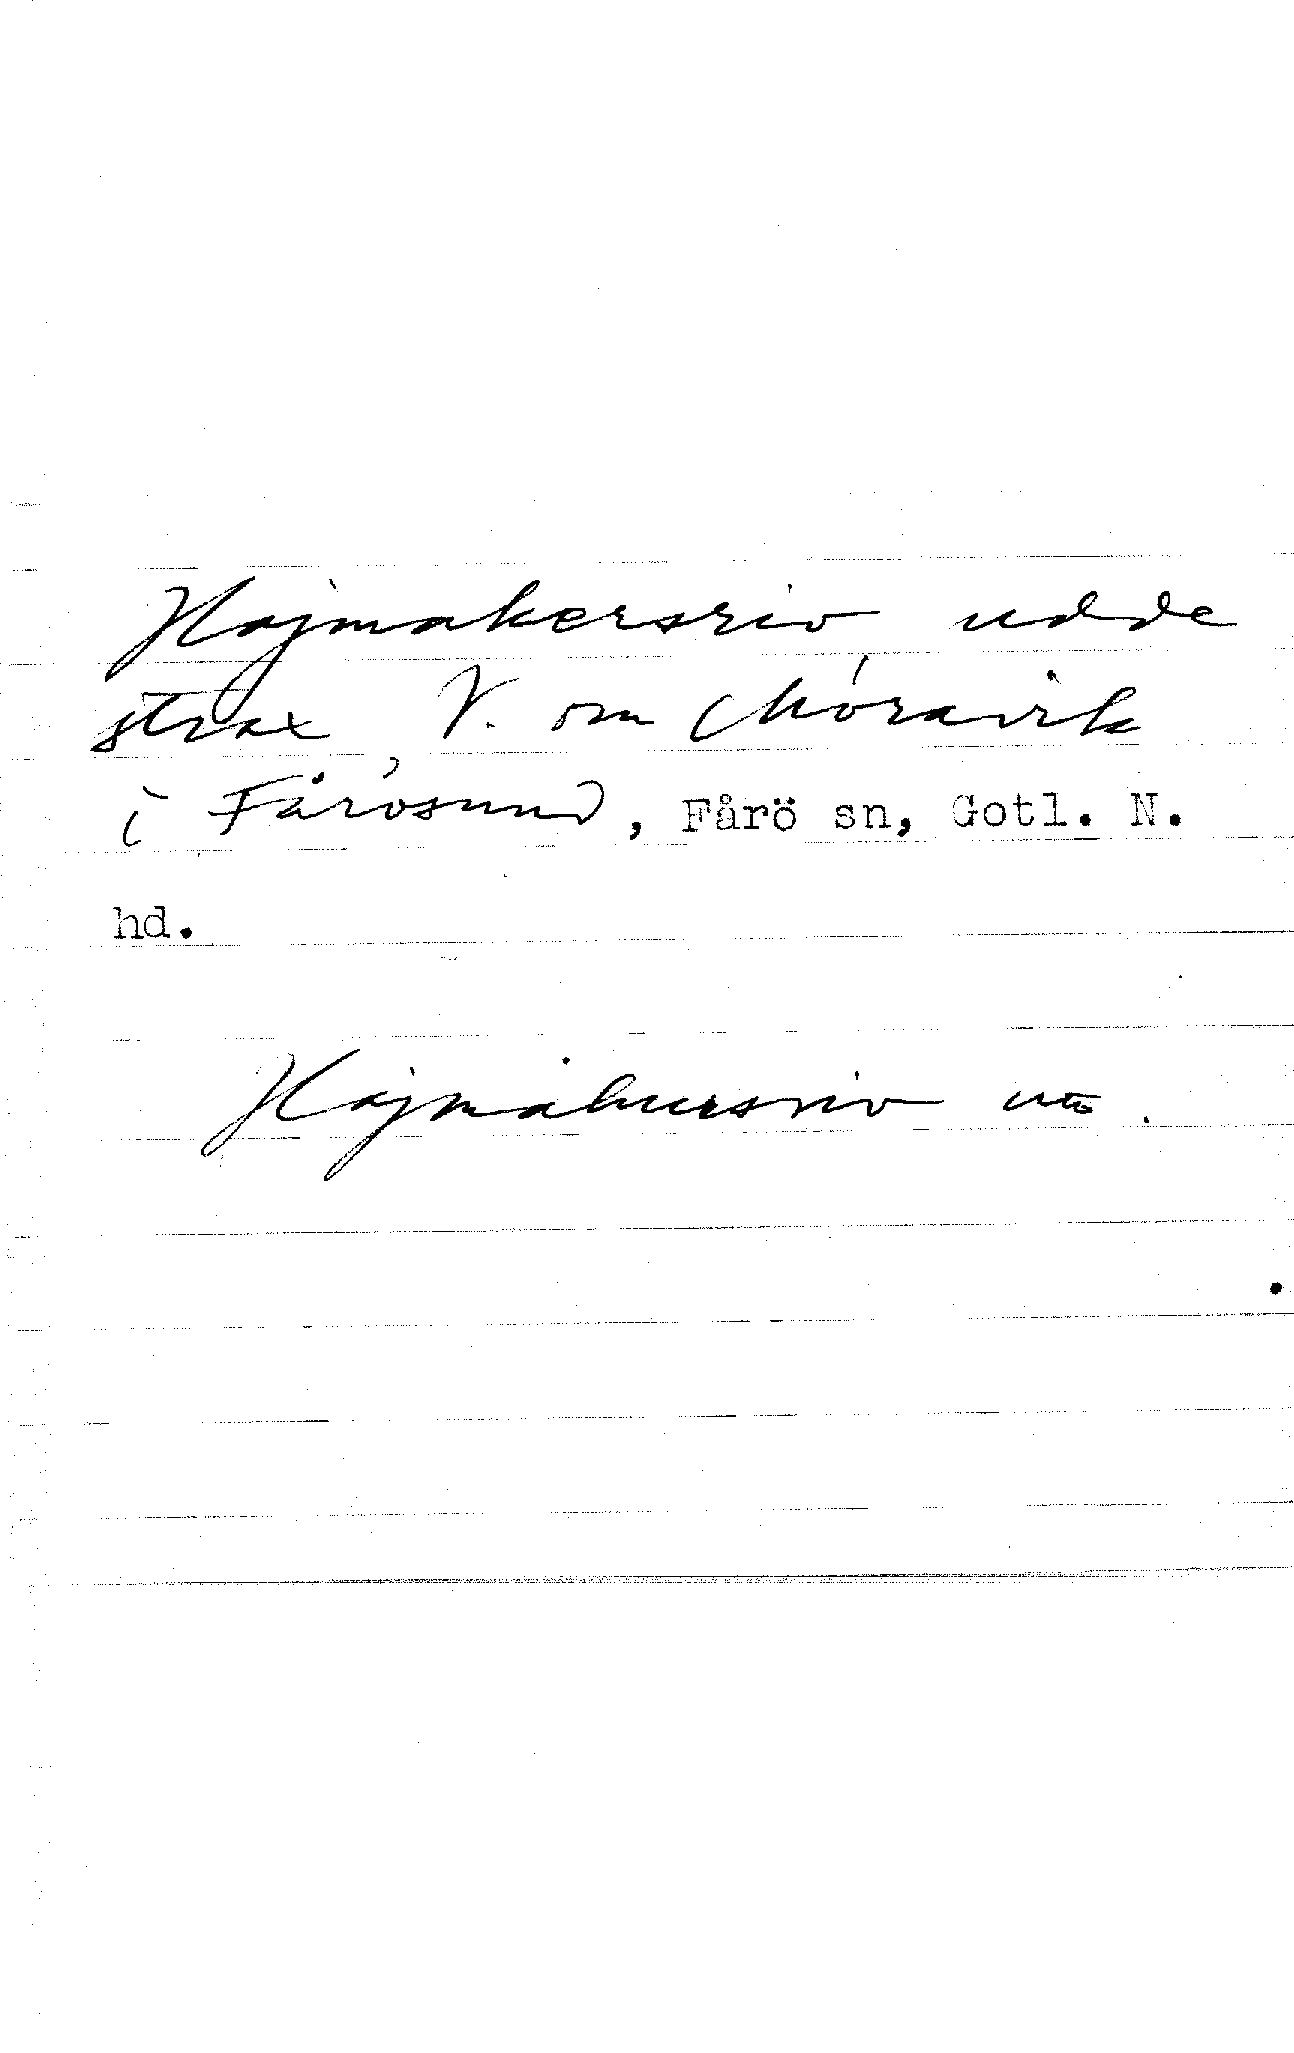 Hajmakersriv udde
strax V. om Mòravik
i Fårösund, Fårö sn, Gotl. N.
hd.
Hajmåkersriv